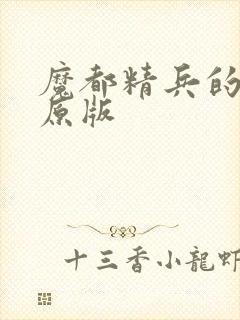 魔都精兵的
原版
十三香小龍蝦